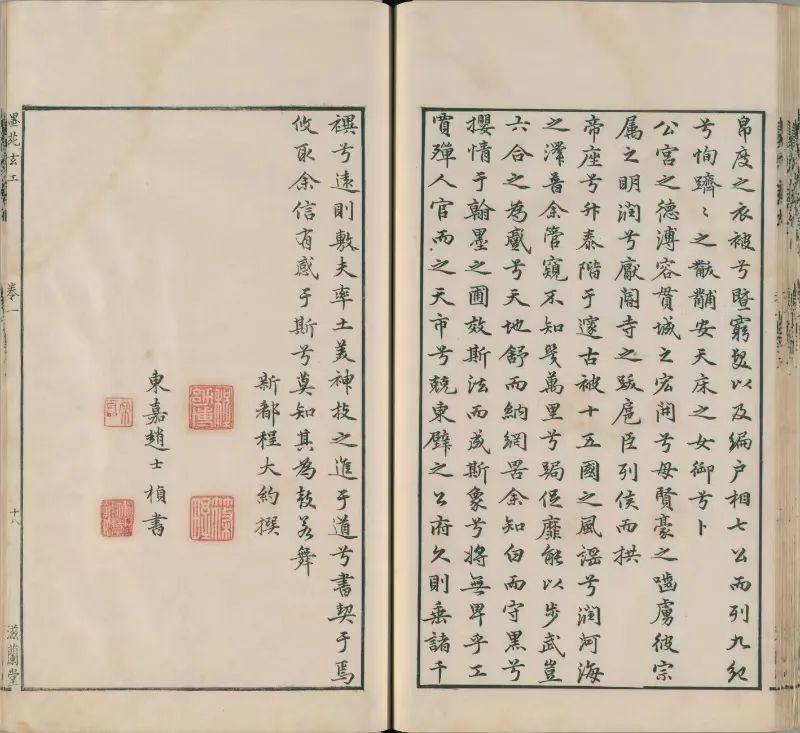 帛度之衣被兮暨窮髮以及編户相七公而列九紀
兮恂躋〻之黻黼安天床之女御兮卜
公宫之德溥容貫城之宏開兮毋賢豪之嚙虜彼宗
属之明潤兮厭閣寺之跋扈臣列侯而拱
帝座兮升泰階于邃古被十五國之風謡兮潤河海
之澤音余管窺不知幾萬里兮跼促靡能以步武豈
六合之為戲兮天地舒而納網罟余知白而守黑兮
攖情于翰墨之圃效斯法而成斯象兮將無畀乎工
賈殫人官而之天市兮競東壁之公府久則垂諸千
禩兮遠則敷夫率土美神技之進于道兮書契于焉
攸取余信有感于斯兮莫知其為鼓若舞
新都程大約撰
東嘉趙士楨書
墨苑玄工
卷一
十八
滋蘭堂